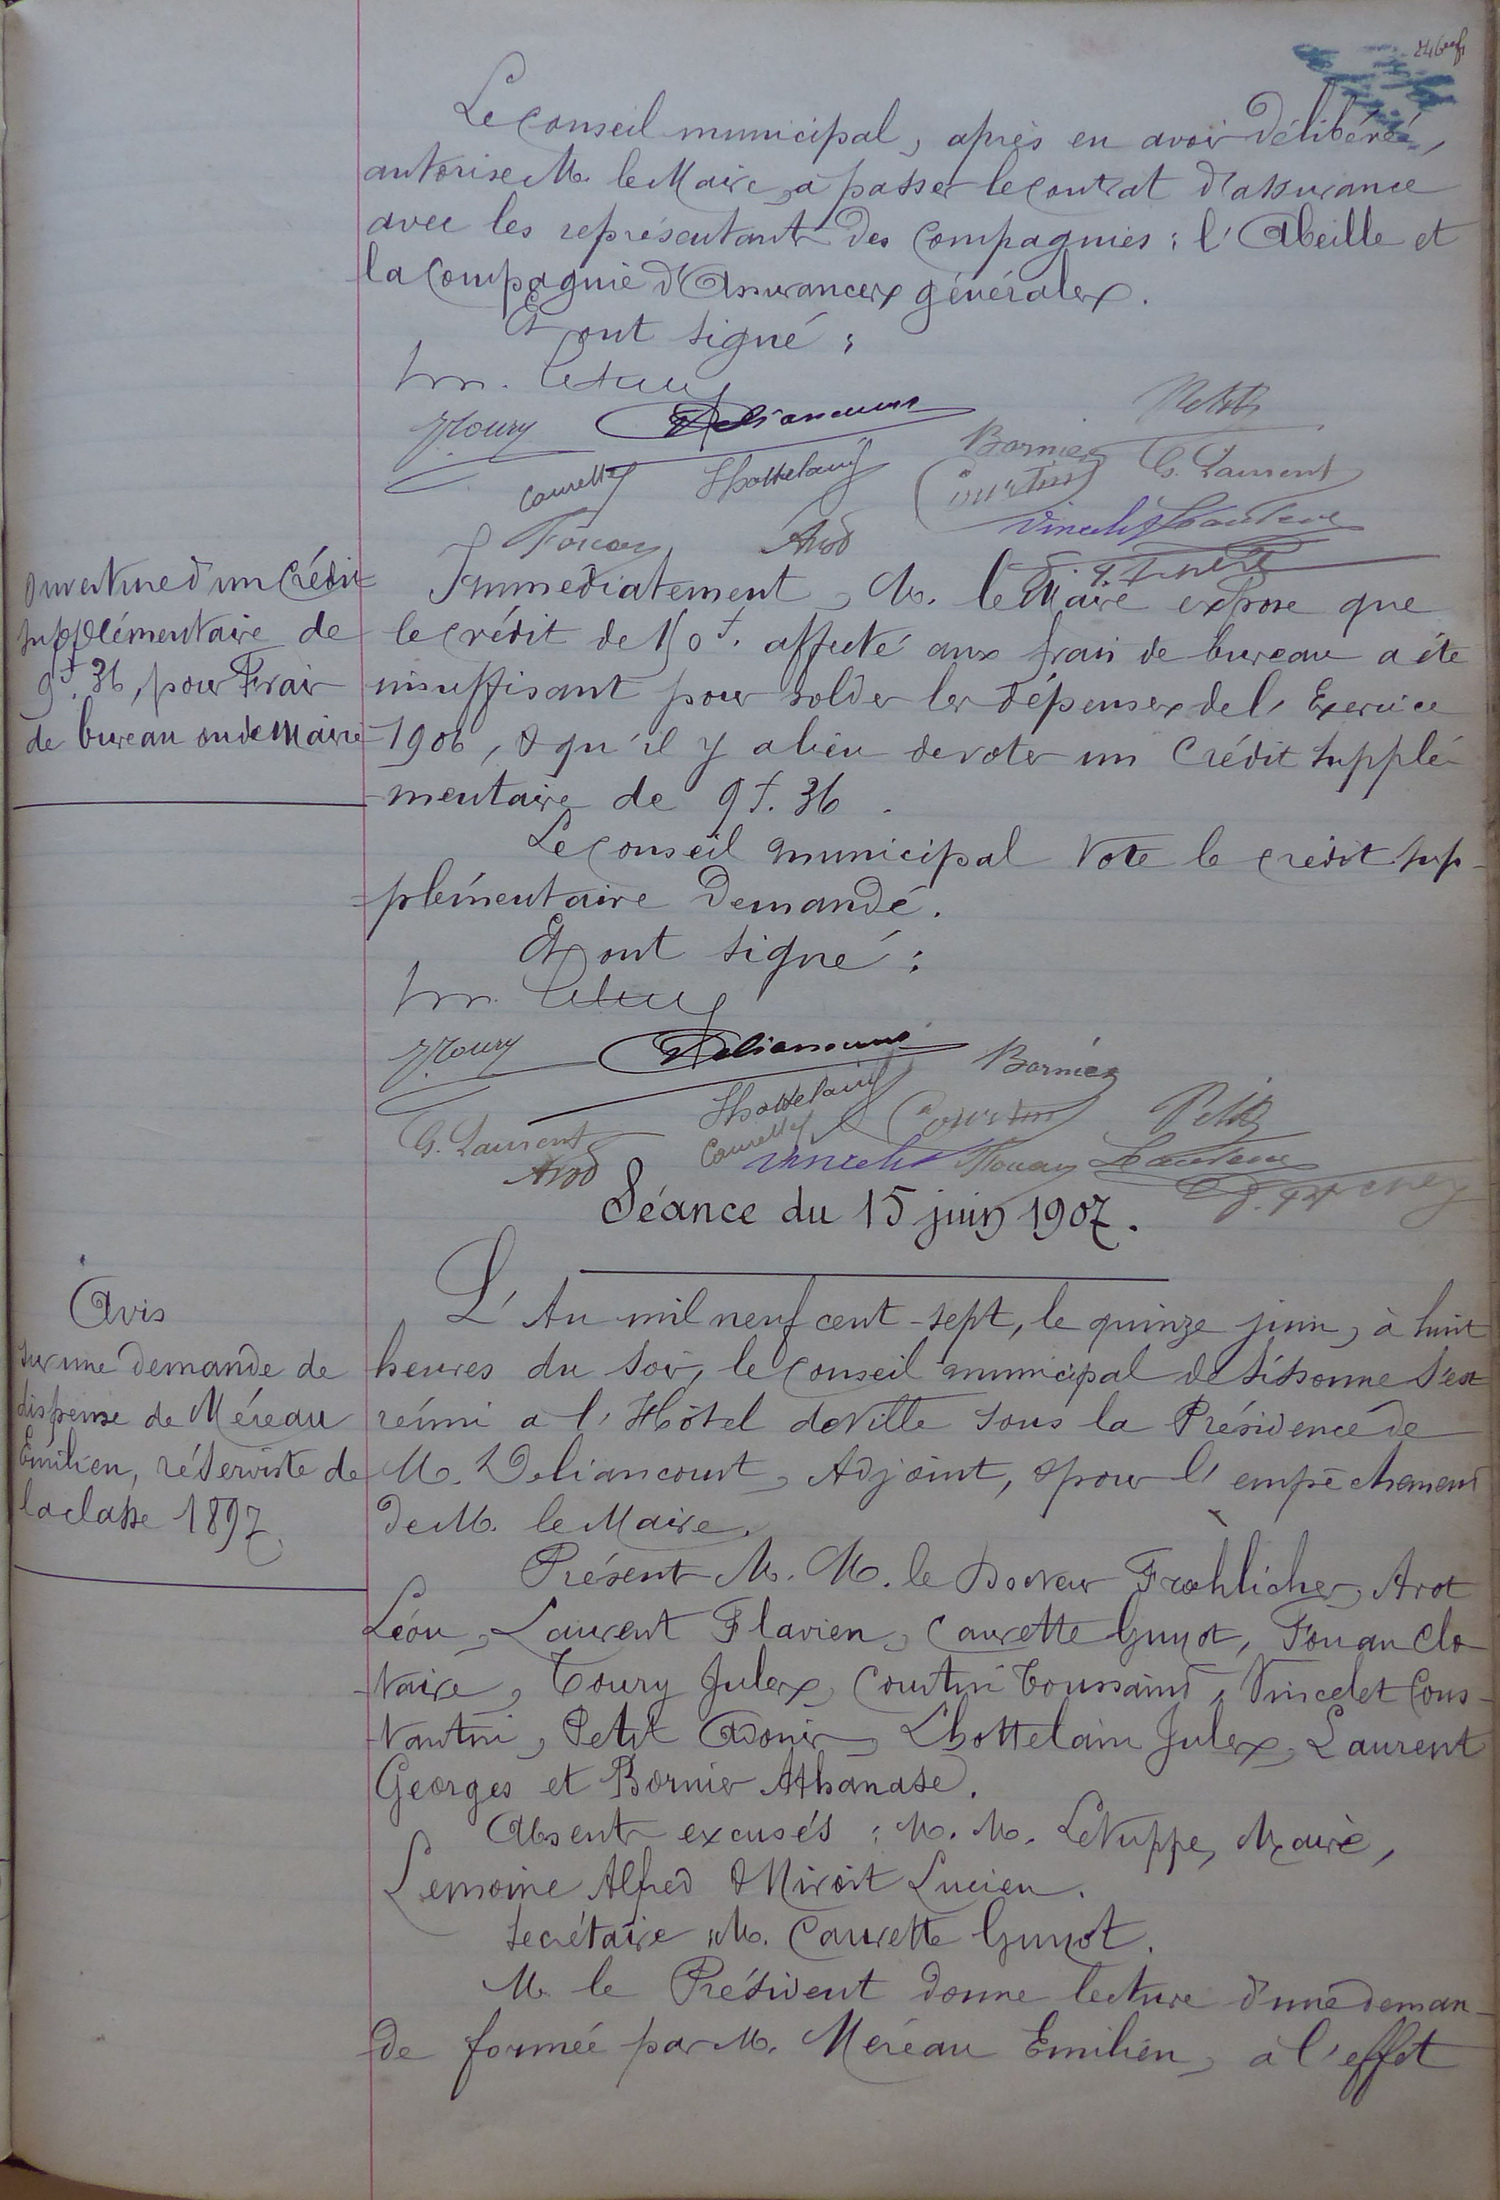 Le Conseil municipal, après en avoir délibéré,
autorise M. le Maire, à passer le contrat d'assurance
avec les représentants des Compagnies : l'Abeille et
la Compagnie d'Assurances générales.
Et ont signé :
Toury Deliancourt Petit
Bornier G. Laurent
Caurette Lhottelain Courtin
Vincelet
Fouan Arod
Ouverture d'un Crédit
supplémentaire de
9f. 36, pour Frais
de bureau
Immédiatement, M. le Maire expose que
le crédit de 150f. affecté aux frais de bureau a été
insuffisant pour solder les dépenses de l'Exercice
1906, & qu'il y a lieu de voter un Crédit supplé-
mentaire de 9f. 36.
Le Conseil municipal vote le crédit sup-
plémentaire demandé.
Et ont signé :
Toury Deliancourt Bornier
Lhottelain Courtin Petit
G. Laurent Caurette
Arod Vincelet Fouan
Séance du 15 juin 1907.
Avis
sur une demande de
dispense de Méreau
Emilien, réserviste de
la classe 1897
L'An mil neuf cent-sept, le quinze juin, à huit
heures du soir, le Conseil municipal de Sissonne s'est
réuni à l'Hôtel de Ville sous la Présidence de
M. Deliancourt, Adjoint, & pour l'empêchement
de M. le Maire.
Présents M. M. le Docteur Frœhlicher, Arot
Léon, Laurent Flavien, Caurette Guyot, Fouan Clo-
taire, Toury Jules, Courtin Toussaint, Vincelet Cons-
tantin, Petit Adonis, Lhottelain Jules, Laurent
Georges et Bornier Athanase.
Absents excusés : M. M. Letuppe, Maire,
Lemoine Alfred & Miroit Lucien.
Secrétaire, M. Caurette Guyot.
M. le Président donne lecture d'une deman-
de formée par M. Méreau Emilien, à l'effet